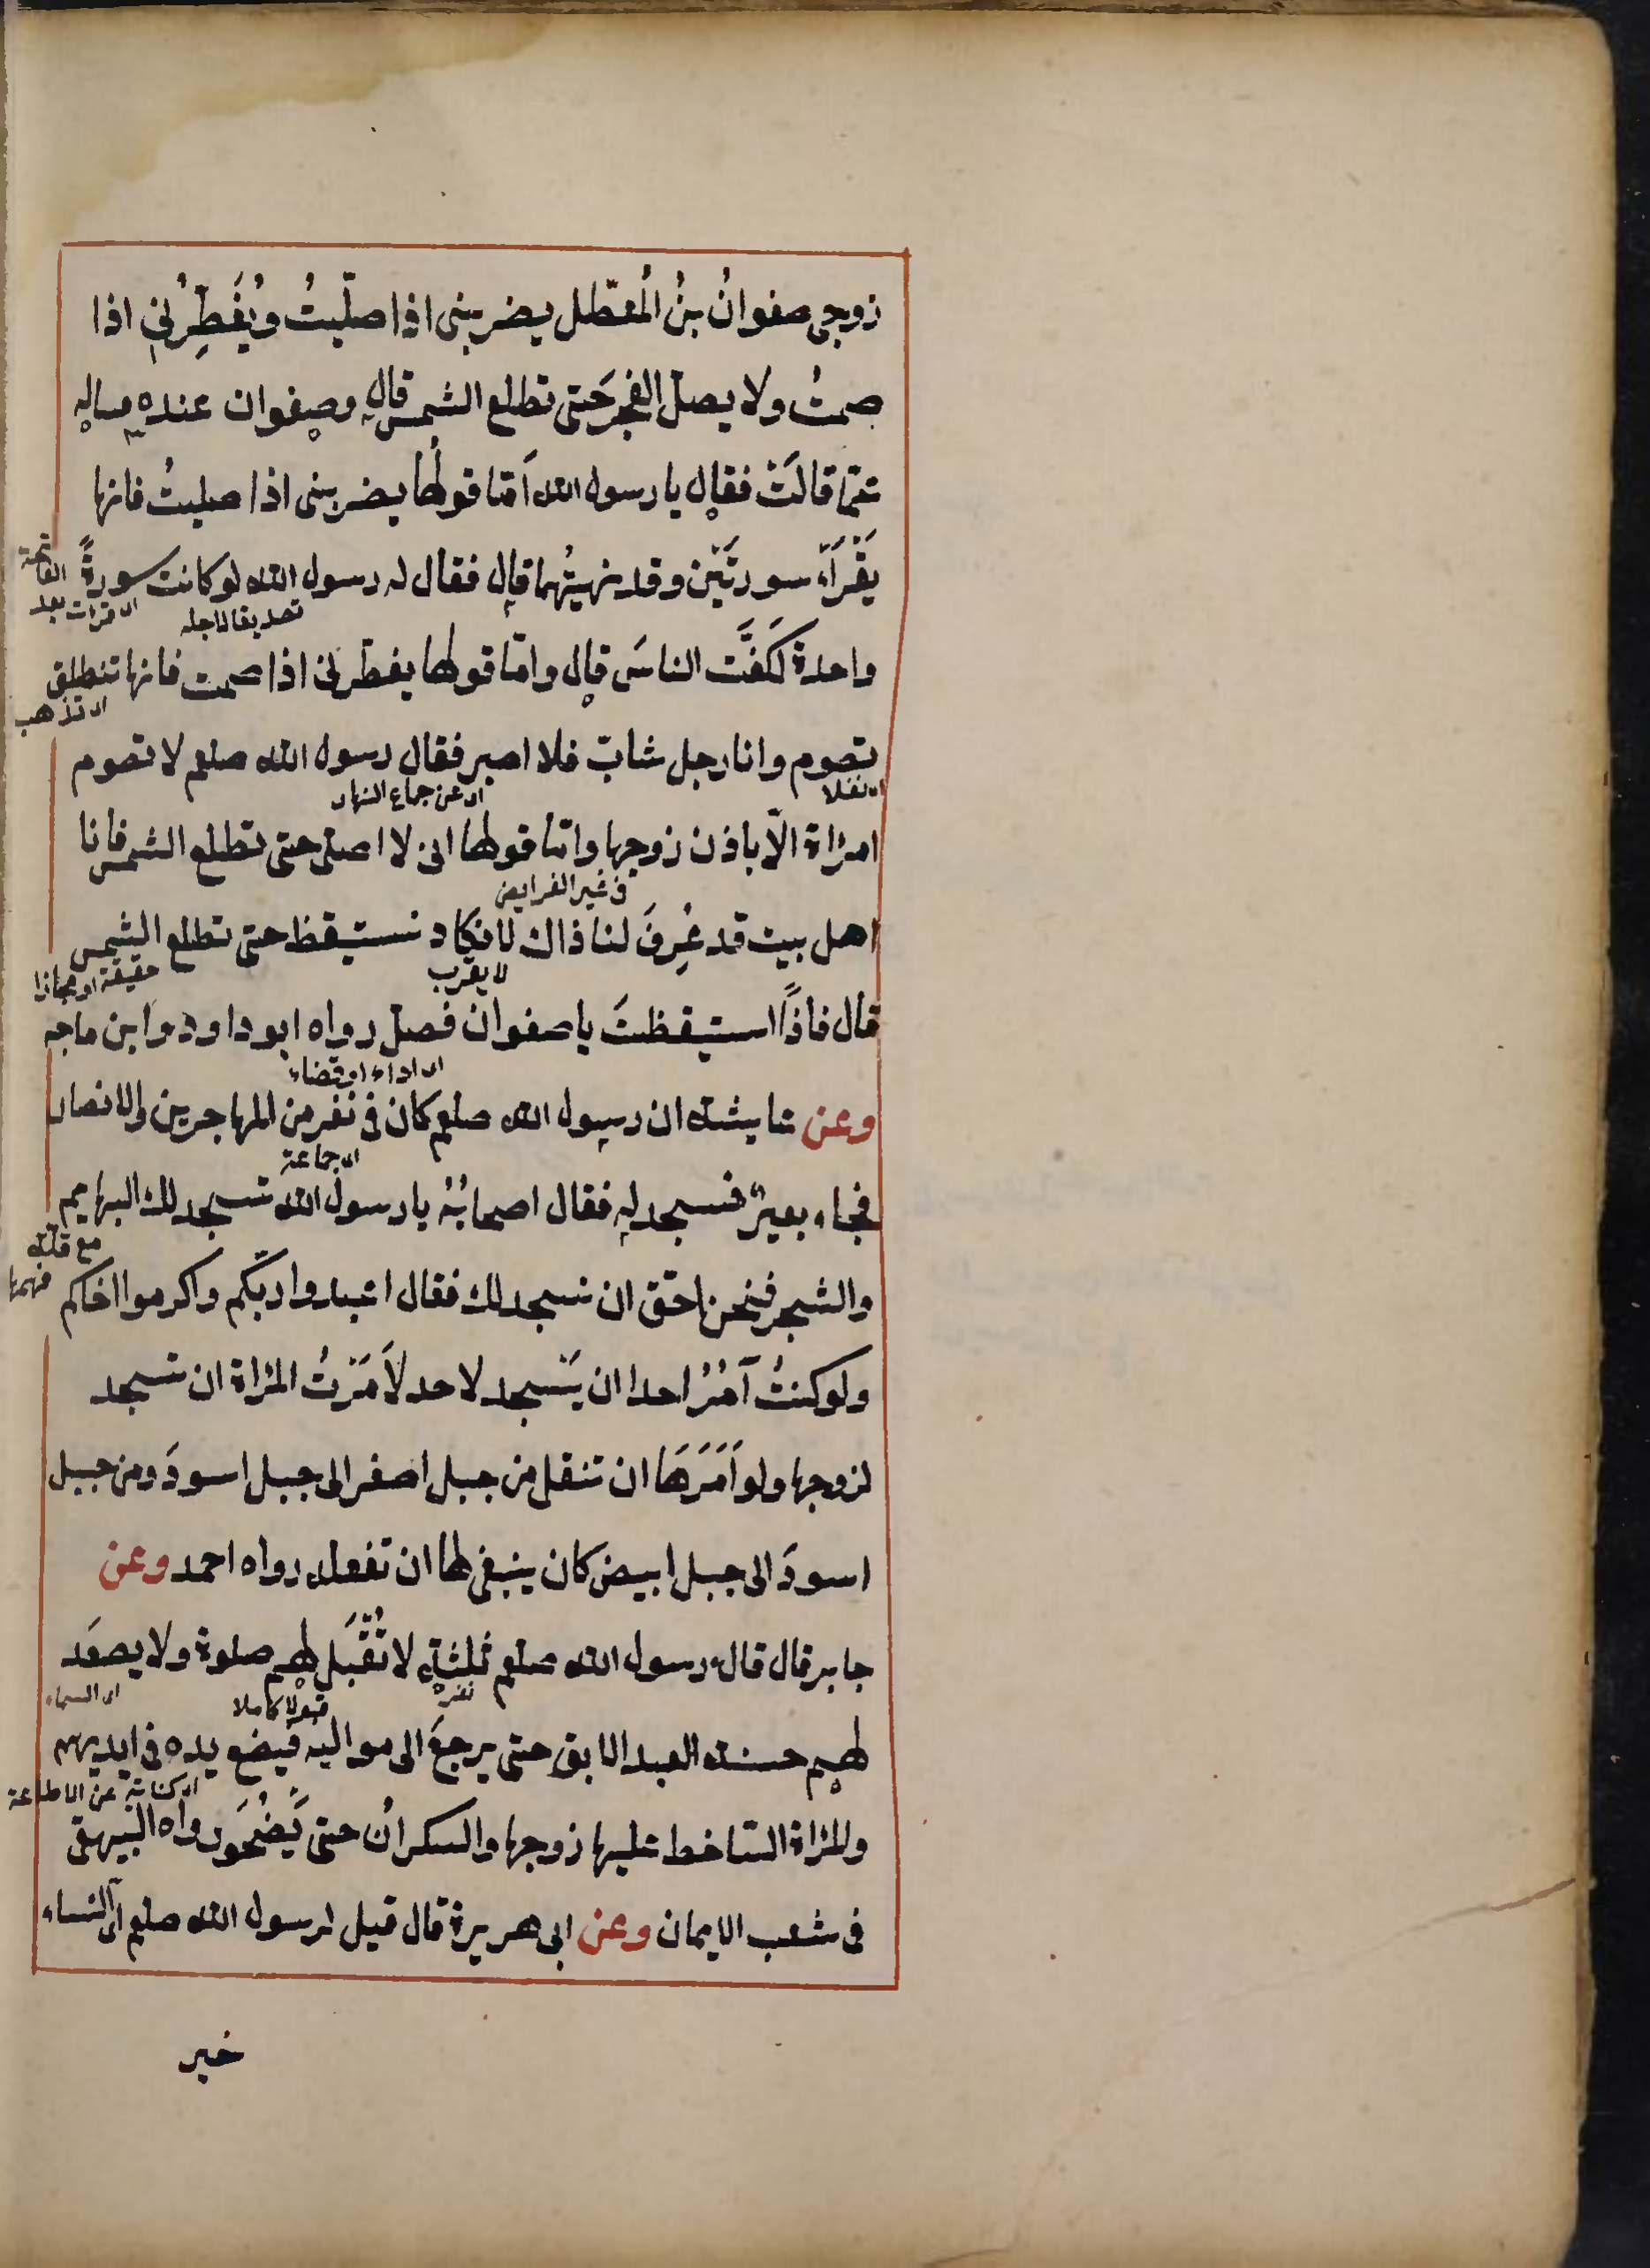 زوجى صفوانُ بنُ المُعَطّل يضربنى اذا صلّيتُ ويُفَطِّرُنى اذا
صمتُ ولا يصلّ الفجرَ حتى تطلع الشمس قال وصفوان عنده فساله
عمّا قالَتْ فقال يا رسول الله اَمّا قولُها يضربنى اذا صليتُ فانها
يَقْرَاَء سورتَيْن وقد نهيتُهما قال فقال له رسول الله لو كانت سورةً
الفاتحة
اى قرات بعد
تصديقا لاجله
واحدة لَكَفَّت الناسَ قال وامّا قولها يفطّرنى اذا صمت فانها تنطلق
اى تذهب
تصوم وانا رجل شابّ فلا اصبر فقال رسول الله صلعم لا تصوم
اى نفلا
اى عن جماع النهار
امرْاة الّا باذن زوجها وامّا قولها انى لا اصلى حتى تطلع الشمس فانا
فى غير الفرايض
اهل بيت قد عُرِفَ لنا ذاك لا نكاد نستيقظ حتى تطلع الشمس
لا يقرب
حقيقة او مجازا
قال فاذَا استيقظتَ يا صفوان فصلّ رواه ابو داود وابن ماجه
اى اداء او قضاء
وعن عايشة ان رسول الله صلعم كان فى نفر من المهاجرين والانصار
اى جماعة
فجاء بعيرٌ فسجد له فقال اصحابُهُ يا رسول الله تسجد لك البهايم
مع قلة
فهمها
والشجر فنحن احقّ ان نسجد لك فقال اعبدوا ربّكم واكرموا اخاكم
ولو كنتُ آمُرُ احدا ان يَسْجد لاحد لاَمَرْتُ المرْاة ان تسجد
لزوجها ولو اَمَرَهَا ان تنقل من جبل اصفر الى جبل اسودَ ومن جبل
اسودَ الى جبل ابيض كان ينبغى لها ان تفعله رواه احمد وعن
جابر قال قال رسول الله صلعم ثلثة لا تُقْبَل لهم صلوة ولا يصعَد
نفر
قبولا كاملا
اى السماء
لهم حسنة العبد الابق حتى يرجعَ الى مواليه فيضع يده فى ايديهم
اى كناية عن الاطاعة
والمرْاة السّاخط عليها زوجها والسكرانُ حتى يَضْحُوَ رواه البيهقى
فى شعب الايمان وعن ابى هريرة قال قيل لرسول الله صلعم اىّ النساء
خير